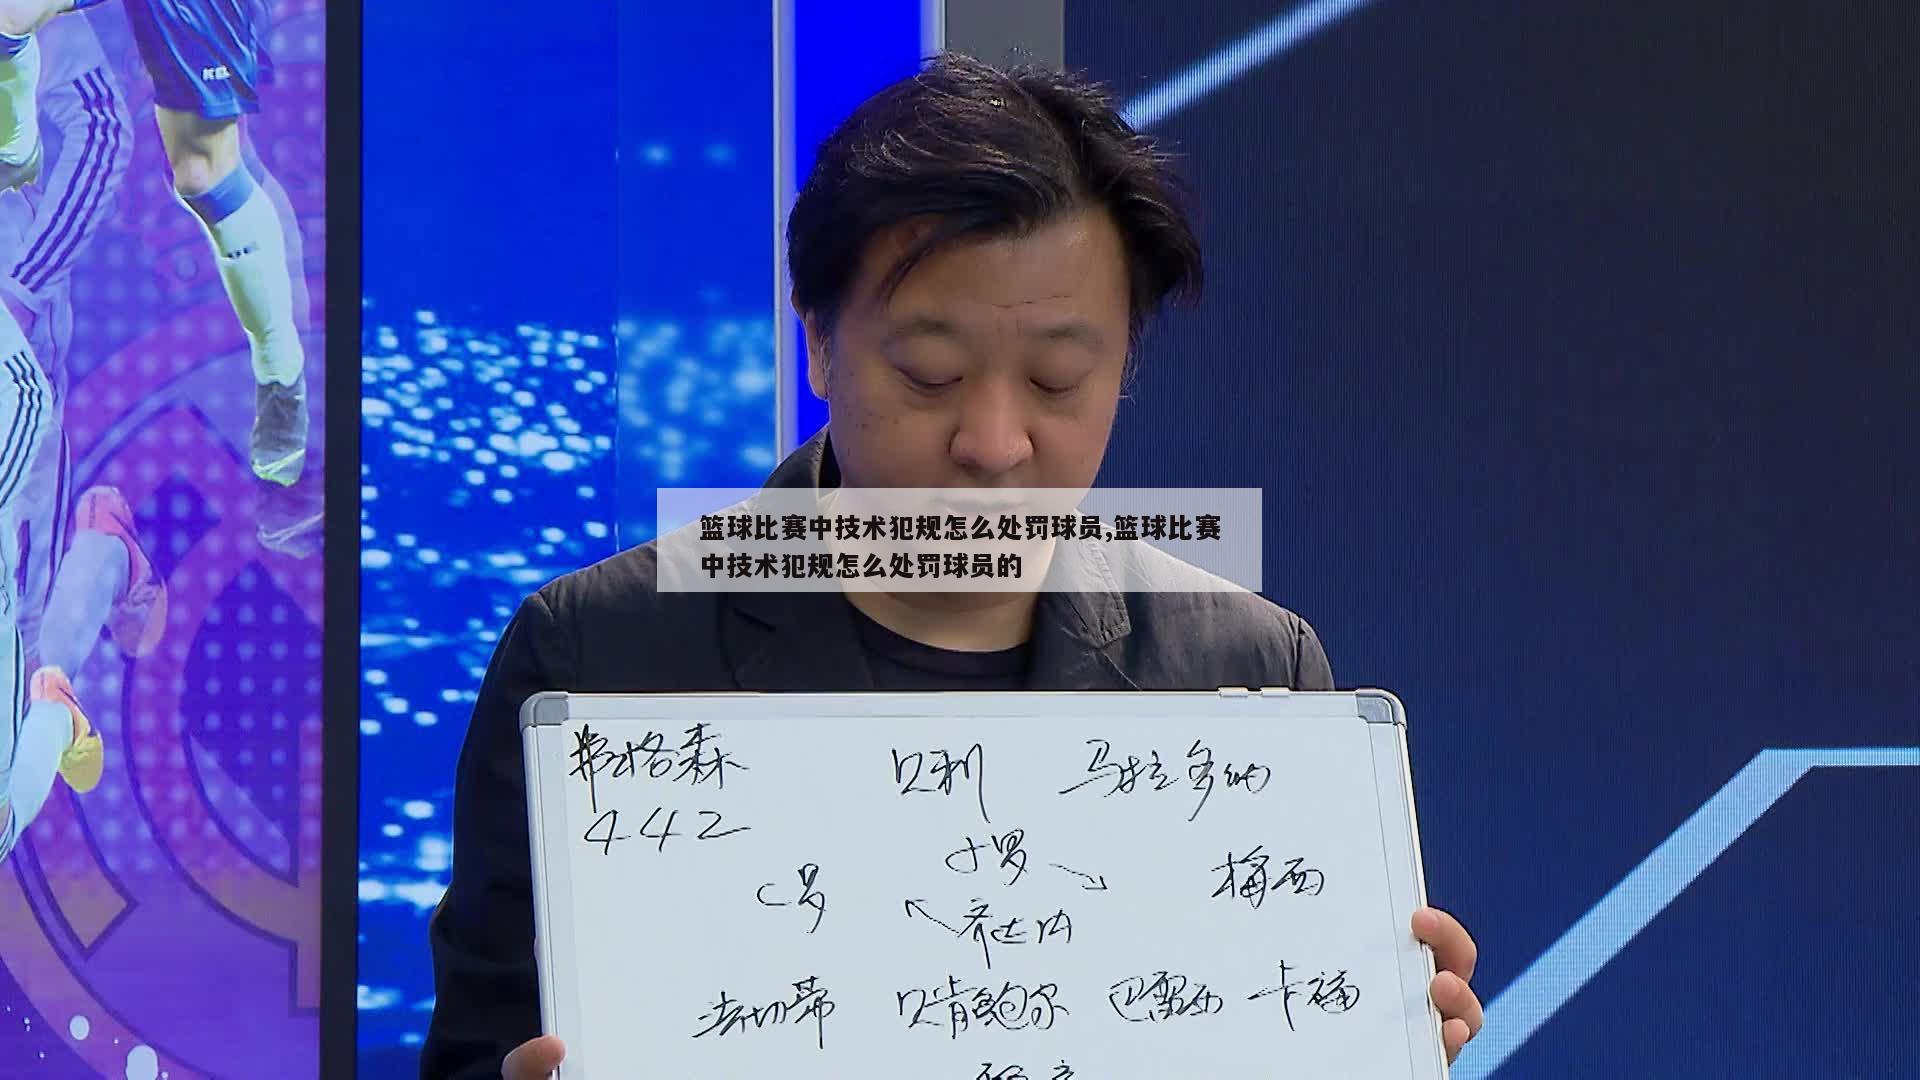 KEL
篮球比赛中技术犯规怎么处罚球员,篮球比赛
中技术犯规怎么处罚球员的
弗格森 贝利 马拉多纳
442
小罗
C罗 梅西
齐达内
法切蒂 贝肯鲍尔 巴雷西 卡福